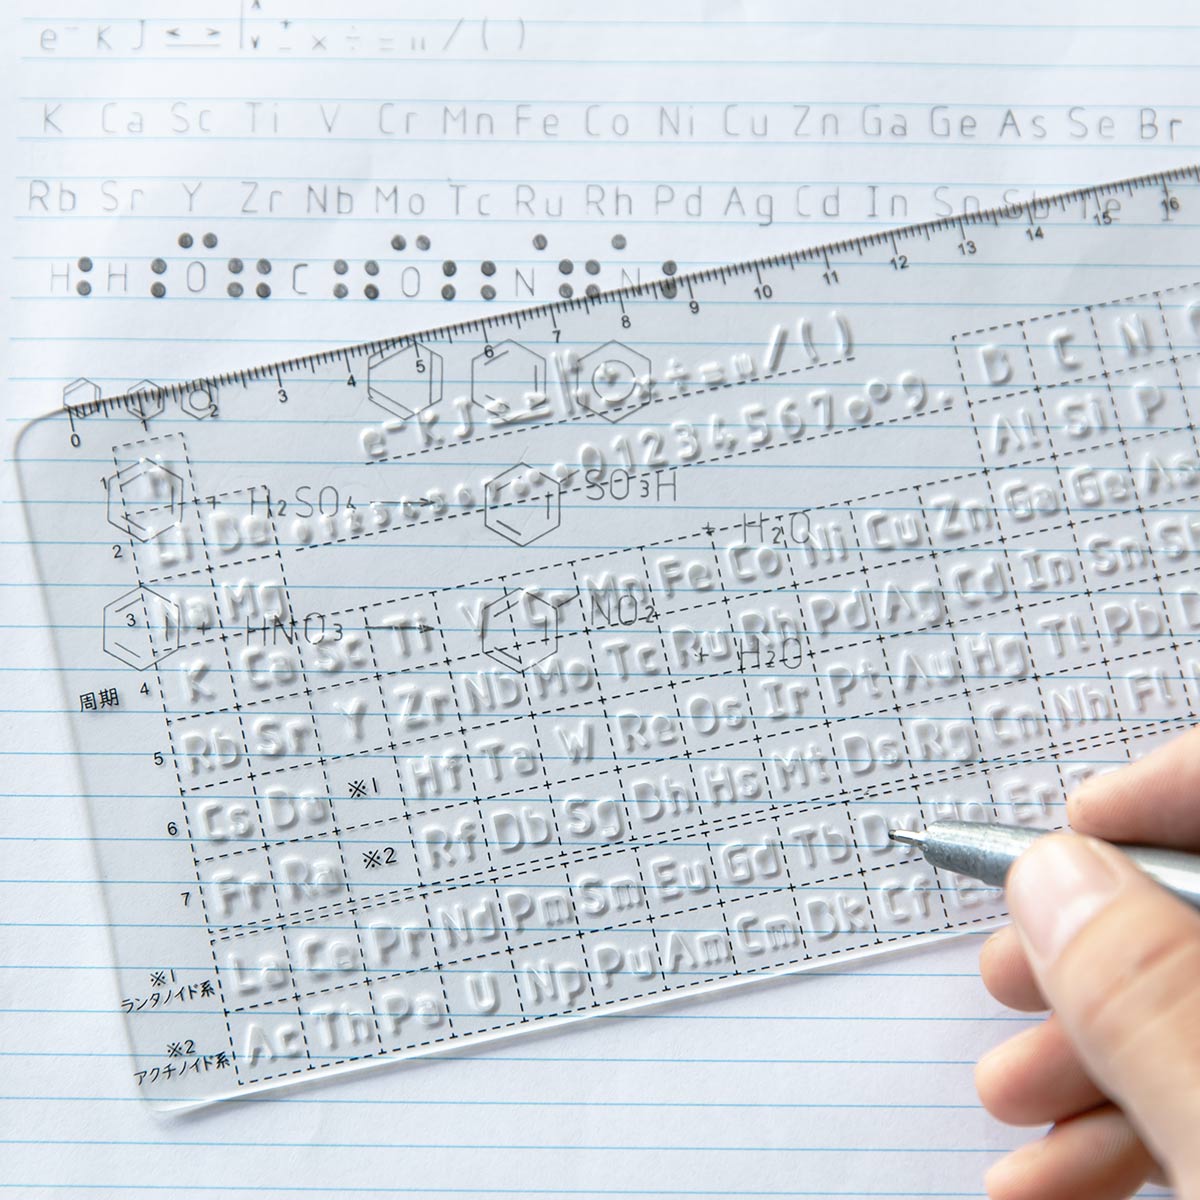 e⁻ K J ≤ ≥ | + − × ÷ = " / ( )
K Ca Sc Ti V Cr Mn Fe Co Ni Cu Zn Ga Ge As Se Br
Rb Sr Y Zr Nb Mo Tc Ru Rh Pd Ag Cd In Sn Sb Te
H H O C O N N
0 1 2 3 4 5 6 7 8 9 10 11 12 13 14 15 16
e⁻ K J / ( )
B C N
0 1 2 3 4 5 6 7 8 9 .
Al Si P
+ H₂SO₄ → SO₃H + H₂O
1 H
2 Li Be
3 Na Mg
+ HNO₃ → NO₂ + H₂O
周期
4 K Ca Sc Ti V Cr Mn Fe Co Ni Cu Zn Ga Ge As
5 Rb Sr Y Zr Nb Mo Tc Ru Rh Pd Ag Cd In Sn Sb
6 Cs Ba ※1 Hf Ta W Re Os Ir Pt Au Hg Tl Pb
7 Fr Ra ※2 Rf Db Sg Bh Hs Mt Ds Rg Cn Nh Fl
※1
ランタノイド系 La Ce Pr Nd Pm Sm Eu Gd Tb Dy Ho Er
※2
アクチノイド系 Ac Th Pa U Np Pu Am Cm Bk Cf